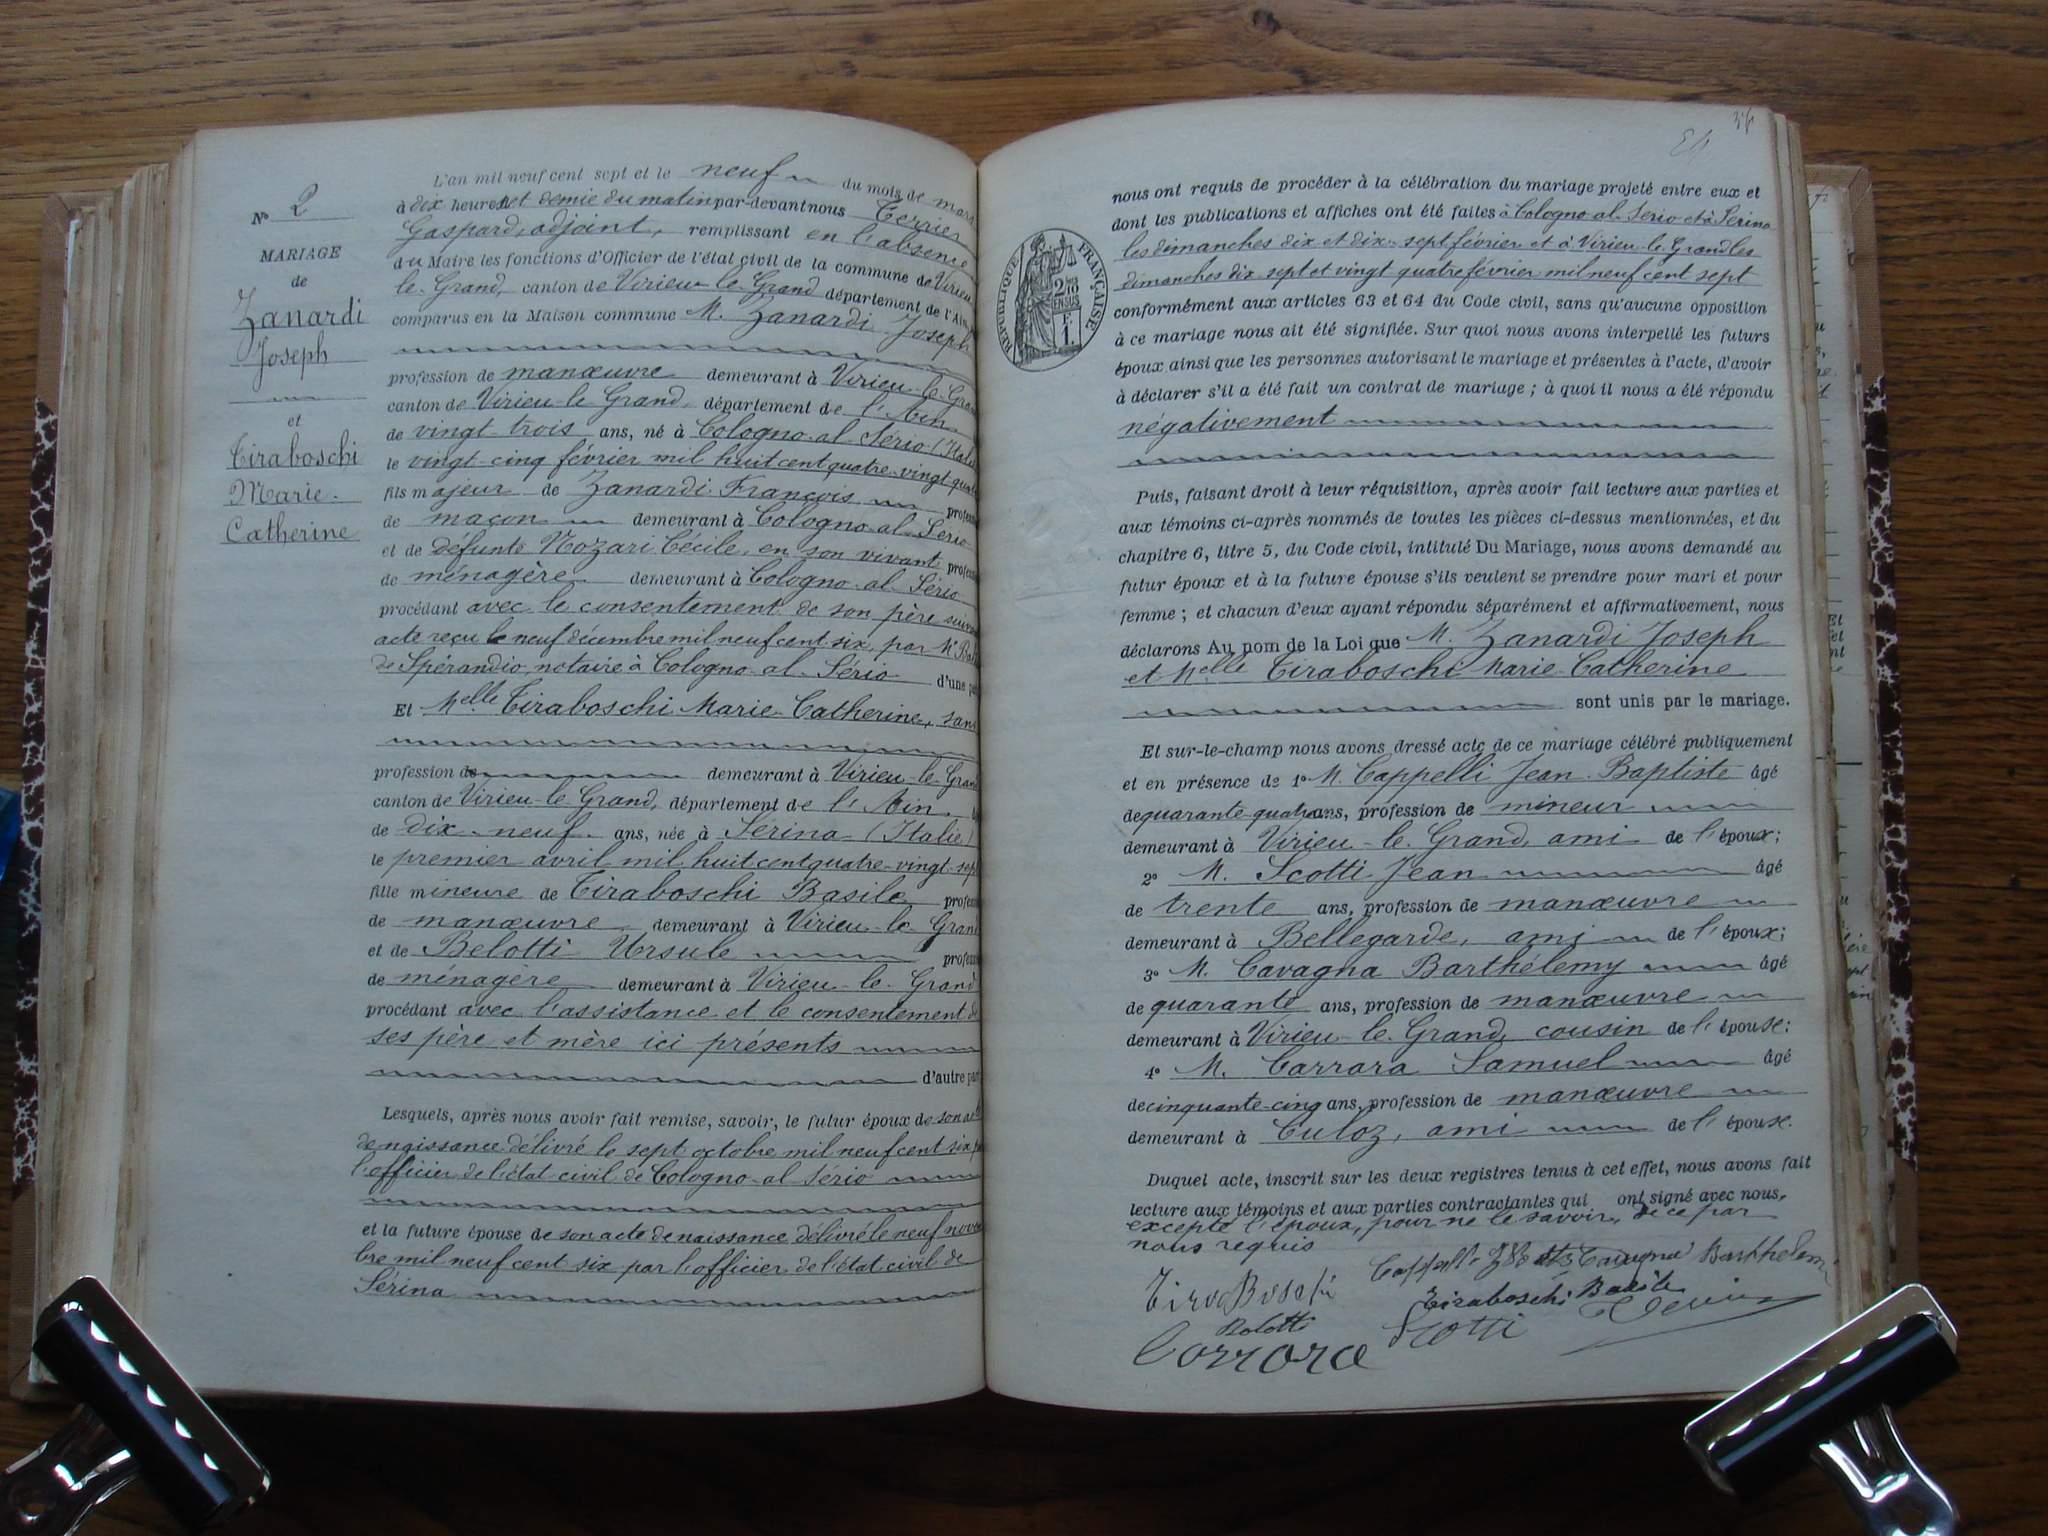 N° 2
MARIAGE
de
Zanardi
Joseph
et
Tiraboschi
Marie-
Catherine
L'an mil neuf cent sept et le neuf du mois de mars
à dix heures et demie du matin par-devant nous Terrier
Gaspard, adjoint, remplissant en l'absence
du Maire les fonctions d'Officier de l'état civil de la commune de Virieu-
le-Grand, canton de Virieu-le-Grand département de l'Ain
comparus en la Maison commune M. Zanardi Joseph
profession de manœuvre demeurant à Virieu-le-Grand
canton de Virieu-le-Grand, département de l'Ain
de vingt-trois ans, né à Cologno-al-Sério (Italie
le vingt-cinq février mil huit cent quatre-vingt quatre
fils majeur de Zanardi François profession
de maçon demeurant à Cologno-al-Serio
et de défunte Nozari Cécile, en son vivant profession
de ménagère demeurant à Cologno-al Sério
procédant avec le consentement de son père suivant
acte reçu le neuf décembre mil neuf cent six, par Me
de Spérandio, notaire à Cologno-al-Sério d'une part
Et Melle Tiraboschi Marie-Catherine, sans
profession de demeurant à Virieu-le-Grand
canton de Virieu-le-Grand, département de l'Ain
de dix-neuf ans, née à Sérina (Italie)
le premier avril mil huit cent quatre-vingt-sept
fille mineure de Tiraboschi Basile profession
de manœuvre demeurant à Virieu-le-Grand
et de Belotti Ursule profession
de ménagère demeurant à Virieu-le-Grand
procédant avec l'assistance et le consentement de
ses père et mère ici présents
d'autre part
Lesquels, après nous avoir fait remise, savoir, le futur époux de son acte
de naissance délivré le sept octobre mil neuf cent six par
l'officier de l'état-civil de Cologno-al Sério
et la future épouse de son acte de naissance délivré le neuf novem
bre mil neuf cent six par l'officier de l'état civil de
Sérina
nous ont requis de procéder à la célébration du mariage projeté entre eux et
dont les publications et affiches ont été faites à Cologno-al-Serio et à Sérina
les dimanches dix et dix-sept février et à Virieu-le-Grand les
dimanches dix sept et vingt quatre février mil neuf cent sept
conformément aux articles 63 et 64 du Code civil, sans qu'aucune opposition
à ce mariage nous ait été signifiée. Sur quoi nous avons interpellé les futurs
époux ainsi que les personnes autorisant le mariage et présentes à l'acte, d'avoir
à déclarer s'il a été fait un contrat de mariage ; à quoi il nous a été répondu
négativement
RÉPUBLIQUE FRANÇAISE
Puis, faisant droit à leur réquisition, après avoir fait lecture aux parties et
aux témoins ci-après nommés de toutes les pièces ci-dessus mentionnées, et du
chapitre 6, titre 5, du Code civil, intitulé Du Mariage, nous avons demandé au
futur époux et à la future épouse s'ils veulent se prendre pour mari et pour
femme ; et chacun d'eux ayant répondu séparément et affirmativement, nous
déclarons Au nom de la Loi que M. Zanardi Joseph
et Melle Tiraboschi Marie-Catherine
sont unis par le mariage.
Et sur-le-champ nous avons dressé acte de ce mariage célébré publiquement
et en présence de 1° M. Cappelli Jean-Baptiste âgé
de quarante-quatre ans, profession de mineur
demeurant à Virieu-le-Grand, ami de l'époux;
2° M. Scotti Jean âgé
de trente ans, profession de manœuvre
demeurant à Bellegarde, ami de l'époux;
3° M. Cavagna Barthélemy âgé
de quarante ans, profession de manœuvre
demeurant à Virieu-le-Grand, cousin de l'épouse;
4° M. Carrara Samuel âgé
de cinquante-cinq ans, profession de manœuvre
demeurant à Culoz, ami de l'épouse.
Duquel acte, inscrit sur les deux registres tenus à cet effet, nous avons fait
lecture aux témoins et aux parties contractantes qui ont signé avec nous,
excepté l'époux, pour ne le savoir, de ce par
nous requis
Barthelemi
TiraBoschi
Tiraboschi Basile
Belotti
Scotti
Carrara